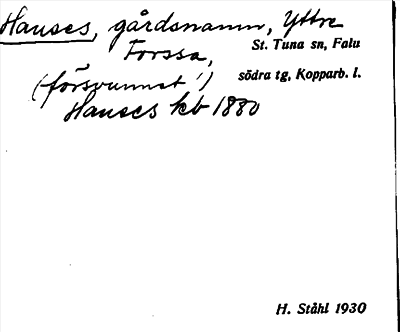 Hanses, gårdsnamn, Yttre
Forssa,
St. Tuna sn, Falu
södra tg, Kopparb. l.
(försvunnet!)
Hanses kb 1880
H. Ståhl 1930